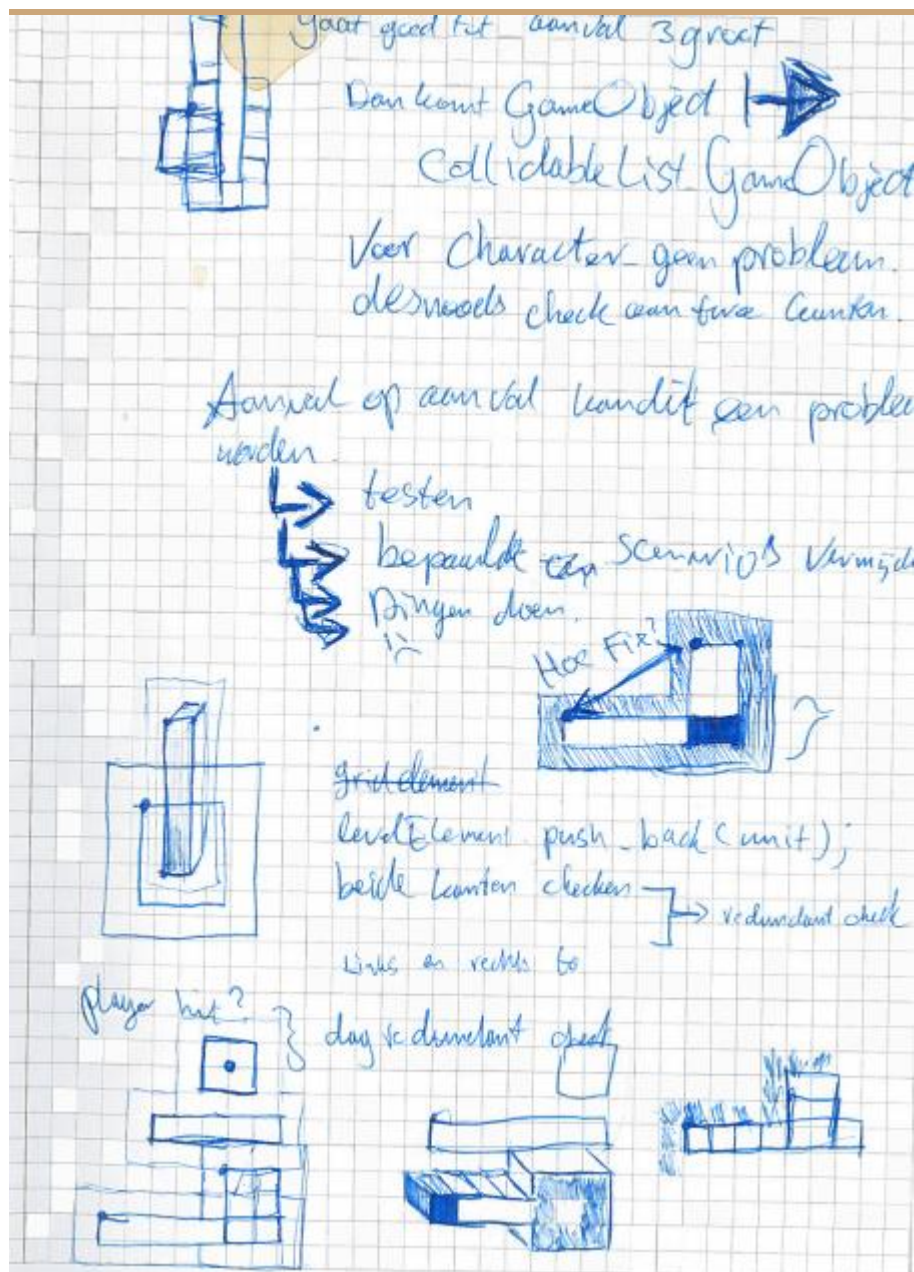 gaat goed tot aanval 3 groot
Dan komt GameObject
CollidableList GameObject
Voor Character geen probleem.
desnoods check aan twee kanten.
Aanval op aanval kan dit een problee
worden.
testen
bepaalde scenario's vermijde
Dingen doen.
Hoe Fix?
gridelement
levelElement push_back(unit);
beide kanten checken
redundant check
Links en rechts to
player hit?
dag redundant check